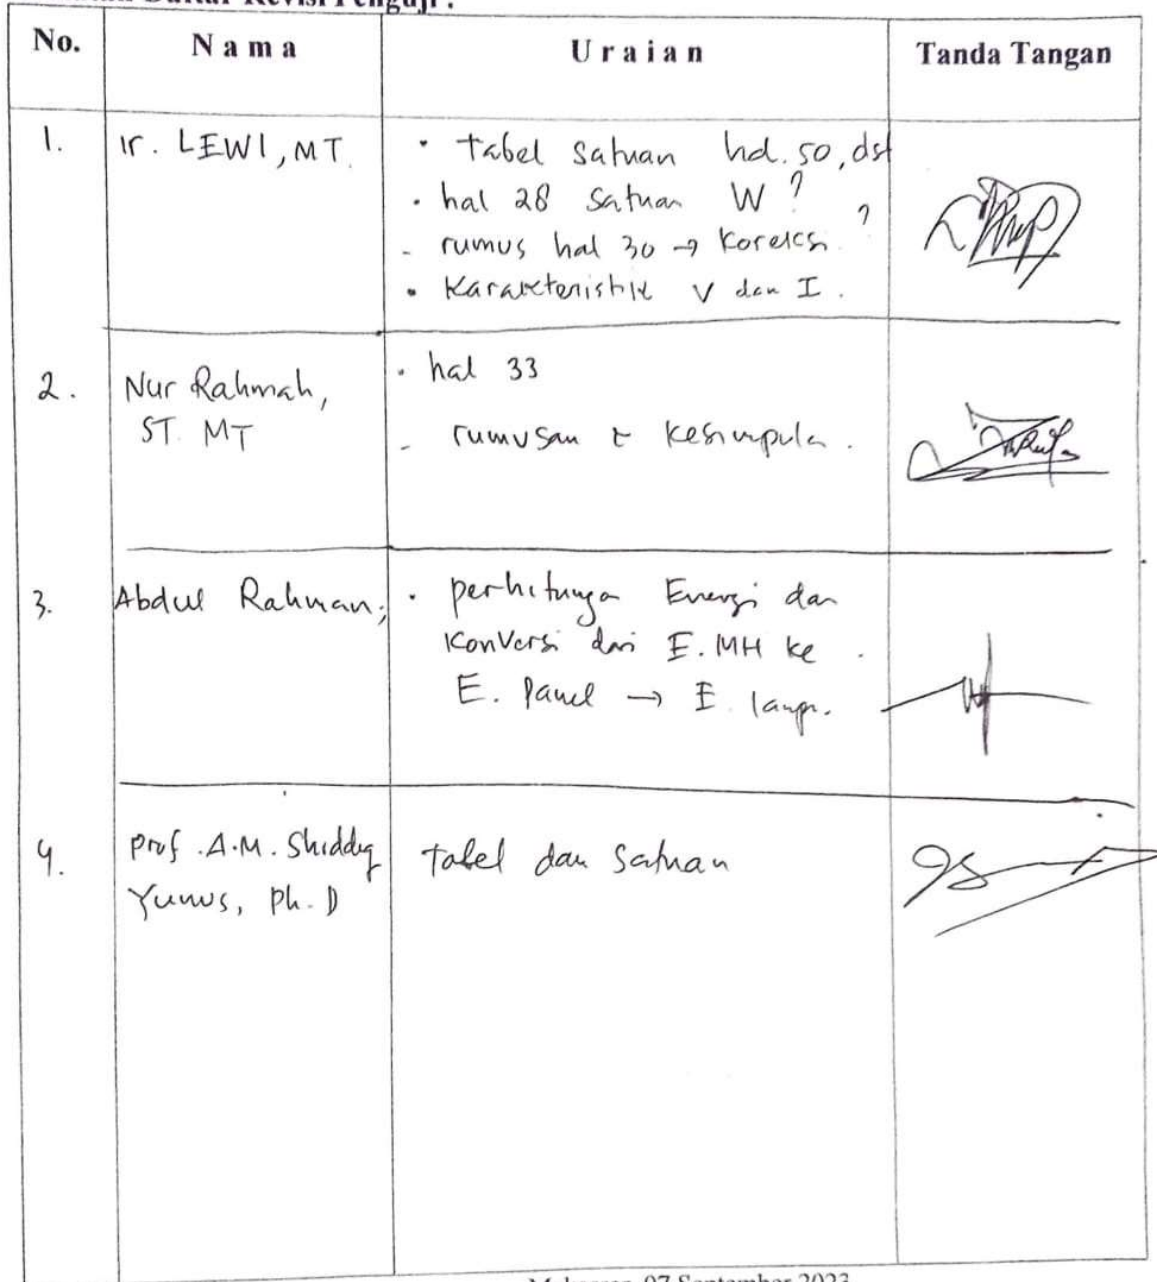 Daftar Revisi Penguji :
No. N a m a U r a i a n Tanda Tangan
1. Ir. LEWI, MT. · tabel satuan hal. 50, dst
· hal 28 satuan W ?
- rumus hal 30 → Koreksi ?
· Karakteristik V dan I .
2. Nur Rahmah, · hal 33
ST. MT - rumusan & kesimpula .
3. Abdul Rahman, · perhitunga Energi dan
Konversi dari E. MH ke .
E. Panel → E. lamp.
4. Prof. A.M. Shiddiq Tabel dan Satuan
Yunus, Ph. D
07 September 2023